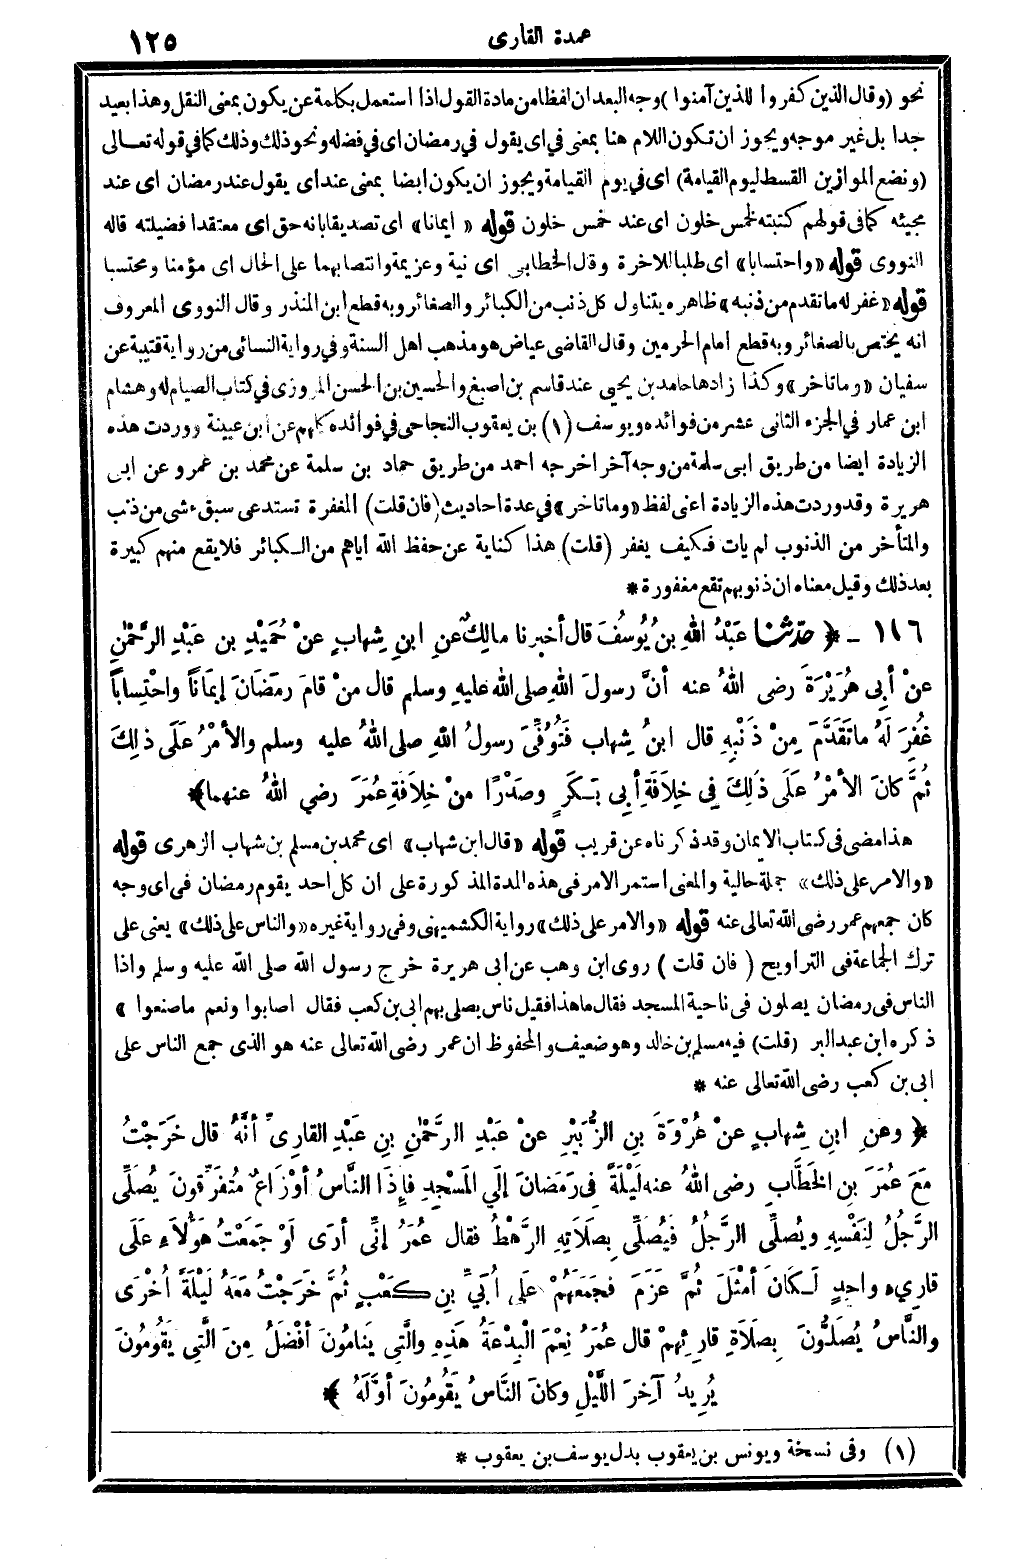 عمدة القارى
١٢٥
نحو (وقال الذين كفروا للذين آمنوا) وجه البعد ان لفظا من مادة القول اذا استعمل بكلمة عن يكون بمعنى النقل وهذا بعيد
جدا بل غير موجه ويجوز ان تكون اللام هنا بمعنى في اى يقول في رمضان اى في فضله ونحو ذلك وذلك كما في قوله تعالى
(ونضع الموازين القسط ليوم القيامة) اى في يوم القيامة ويجوز ان يكون ايضا بمعنى عند اى يقول عند رمضان اى عند
مجيئه كما فى قولهم كتبته لخمس خلون اى عند خمس خلون قوله «ايمانا» اى تصديقا بانه حق اى معتقدا فضيلته قاله
النووى قوله «واحتسابا» اى طلبا للاخرة وقال الخطابى اى نية وعزيمة وانتصابهما على الحال اى مؤمنا ومحتسبا
قوله «غفر له ما تقدم من ذنبه» ظاهره يتناول كل ذنب من الكبائر والصغائر وبه قطع ابن المنذر وقال النووى المعروف
انه يختص بالصغائر وبه قطع امام الحرمين وقال القاضى عياض هو مذهب اهل السنة وفي رواية النسائى من رواية قتيبة عن
سفيان «وما تاخر» وكذا زادها حامد بن يحيى عند قاسم بن اصبغ والحسين بن الحسن المروزى في كتاب الصيام له وهشام
ابن عمار في الجزء الثانى عشر من فوائده ويوسف (١) بن يعقوب النجاحى في فوائده كلهم عن ابن عيينة ووردت هذه
الزيادة ايضا من طريق ابى سلمة من وجه آخر اخرجه احمد من طريق حماد بن سلمة عن محمد بن عمرو عن ابى
هريرة وقد وردت هذه الزيادة اعنى لفظ «وما تاخر» في عدة احاديث (فان قلت) المغفرة تستدعى سبق شىء من ذنب
والمتأخر من الذنوب لم يات فكيف يغفر (قلت) هذا كناية عن حفظ الله اياهم من الكبائر فلا يقع منهم كبيرة
بعد ذلك وقيل معناه ان ذنوبهم تقع مغفورة *
١١٦ - ﴿ حدّثنا عَبْدُ اللهِ بنُ يُوسُفَ قال أخبرنا مالِكٌ عنِ ابنِ شِهابٍ عنْ حُمَيْدِ بن عَبْدِ الرَّحْمٰنِ
عنْ أبى هُرَيْرَةَ رضى اللهُ عنه أنَّ رسولَ اللهِ صلى الله عليهِ وسلم قال منْ قامَ رمَضَانَ إيمَاناً واحْتِساباً
غُفِرَ لَهُ ما تَقَدَّمَ مِنْ ذَنْبِهِ قال ابنُ شِهاب فَتُوُفِّىَ رسولُ اللهِ صلى اللهُ عليه وسلم والأمْرُ عَلَى ذلِكَ
ثُمَّ كانَ الأمْرُ عَلَى ذَلِكَ فِى خِلاَفَةِ أبِى بَكَرٍ وصَدْرًا منْ خِلاَفَةِ عُمَرَ رضي اللهُ عنهما ﴾ *
هذا مضى فى كتاب الايمان وقد ذكرناه عن قريب قوله «قال ابن شهاب» اى محمد بن مسلم بن شهاب الزهرى قوله
«والامر على ذلك» جملة حالية والمعنى استمر الامر فى هذه المدة المذكورة على ان كل احد يقوم رمضان فى اى وجه
كان جمعهم عمر رضى الله تعالى عنه قوله «والامر على ذلك» رواية الكشميهنى وفى رواية غيره «والناس على ذلك» يعنى على
ترك الجماعة فى التراويح (فان قلت) روى ابن وهب عن ابى هريرة خرج رسول الله صلى الله عليه وسلم واذا
الناس فى رمضان يصلون فى ناحية المسجد فقال ما هذا فقيل ناس يصلى بهم ابى بن كعب فقال اصابوا ونعم ما صنعوا »
ذكره ابن عبد البر (قلت) فيه مسلم بن خالد وهو ضعيف والمحفوظ ان عمر رضى الله تعالى عنه هو الذى جمع الناس على
ابى بن كعب رضى الله تعالى عنه *
﴿ وعنِ ابنِ شِهابٍ عنْ عُرْوَةَ بنِ الزُّبَيْرِ عنْ عَبْدِ الرَّحْمٰنِ بنِ عَبْدٍ القارِىِّ أنَّهُ قال خَرَجْتُ
مَعَ عُمَرَ بنِ الخَطَّابِ رضى اللهُ عنه لَيْلَةً فِى رَمَضَانَ إلَى المَسْجِدِ فإذَا النَّاسُ أوْزَاعٌ مُتفَرِّقونَ يُصَلِّى
الرَّجُلُ لِنَفْسِهِ ويُصلِّى الرَّجُلُ فَيُصَلِّى بِصَلاَتِهِ الرَّهْطُ فقال عُمَرُ إنِّى أرَى لَوْ جَمَعْتُ هَؤُلاَءِ عَلَى
قارِىءٍ واحِدٍ لَكانَ أمْثَلَ ثُمَّ عزَمَ فَجَمَعَهُمْ عَلَى أُبَيِّ بنِ كَعْبٍ ثُمَّ خَرَجْتُ مَعَهُ لَيْلَةً أُخْرَى
والنَّاسُ يُصَلُّونَ بِصَلاَةِ قارِئِهِمْ قال عُمَرُ نِعْمَ الْبِدْعَةُ هَذِهِ والَّتِى يَنَامُونَ أفْضَلُ مِنَ الَّتِى يَقُومُونَ
يُرِيدُ آخِرَ اللَّيْلِ وكانَ النَّاسُ يَقُومُونَ أوَّلَهُ ﴾ *
(١) وفى نسخة ويونس بن يعقوب بدل يوسف بن يعقوب *